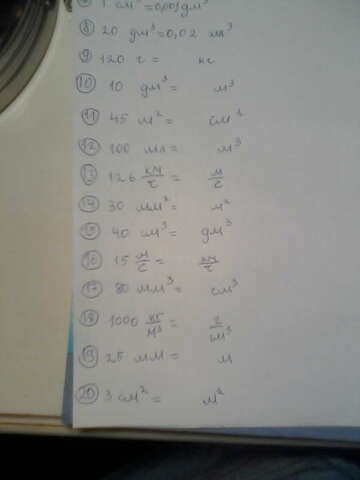 1 см³=0,001дм³
⑧ 20 дм³=0,02 м³
⑨ 120 г = кг
⑩ 10 дм³= м³
⑪ 45 м²= см²
⑫ 100 мл= м³
⑬ 126 км/ч = м/с
⑭ 30 мм²= м²
⑮ 40 см³= дм³
⑯ 15 м/с = км/ч
⑰ 80 мм³= см³
⑱ 1000 кг/м³ = г/см³
⑲ 25 мм = м
⑳ 3 см²= м²